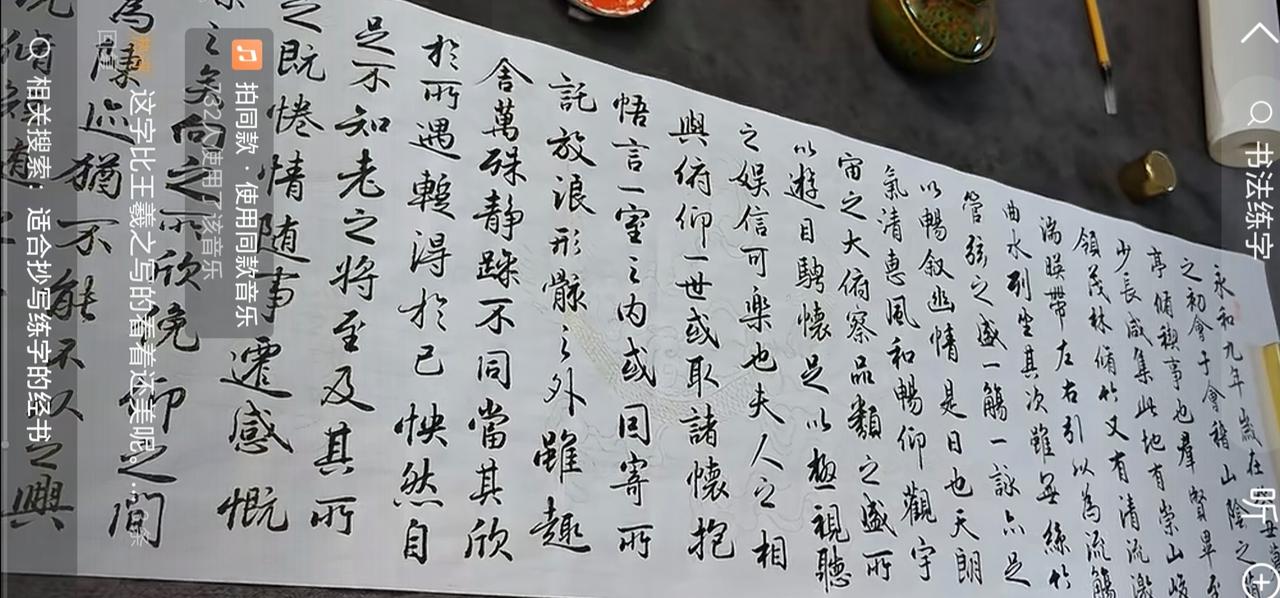 书法练字
听
永和九年歲在
之初會于會稽山陰之
亭脩禊事也羣賢畢至
少長咸集此地有崇山峻
領茂林脩竹又有清流激
湍暎帶左右引以為流觴
曲水列坐其次雖無絲竹
管弦之盛一觴一詠亦足
以暢叙幽情是日也天朗
氣清惠風和暢仰觀宇
宙之大俯察品類之盛所
以遊目騁懷足以極視聽
之娛信可樂也夫人之相
與俯仰一世或取諸懷抱
悟言一室之内或因寄所
託放浪形骸之外雖趣
舍萬殊静躁不同當其欣
於所遇暫得於己怏然自
足不知老之將至及其所
之既惓情随事遷感慨
之矣向之所欣俛仰之間
為陳迹猶不能不以之興
拍同款 · 使用同款音乐
732人使用了该音乐
这字比王羲之写的看着还美呢。...
相关搜索：适合抄写练字的经书